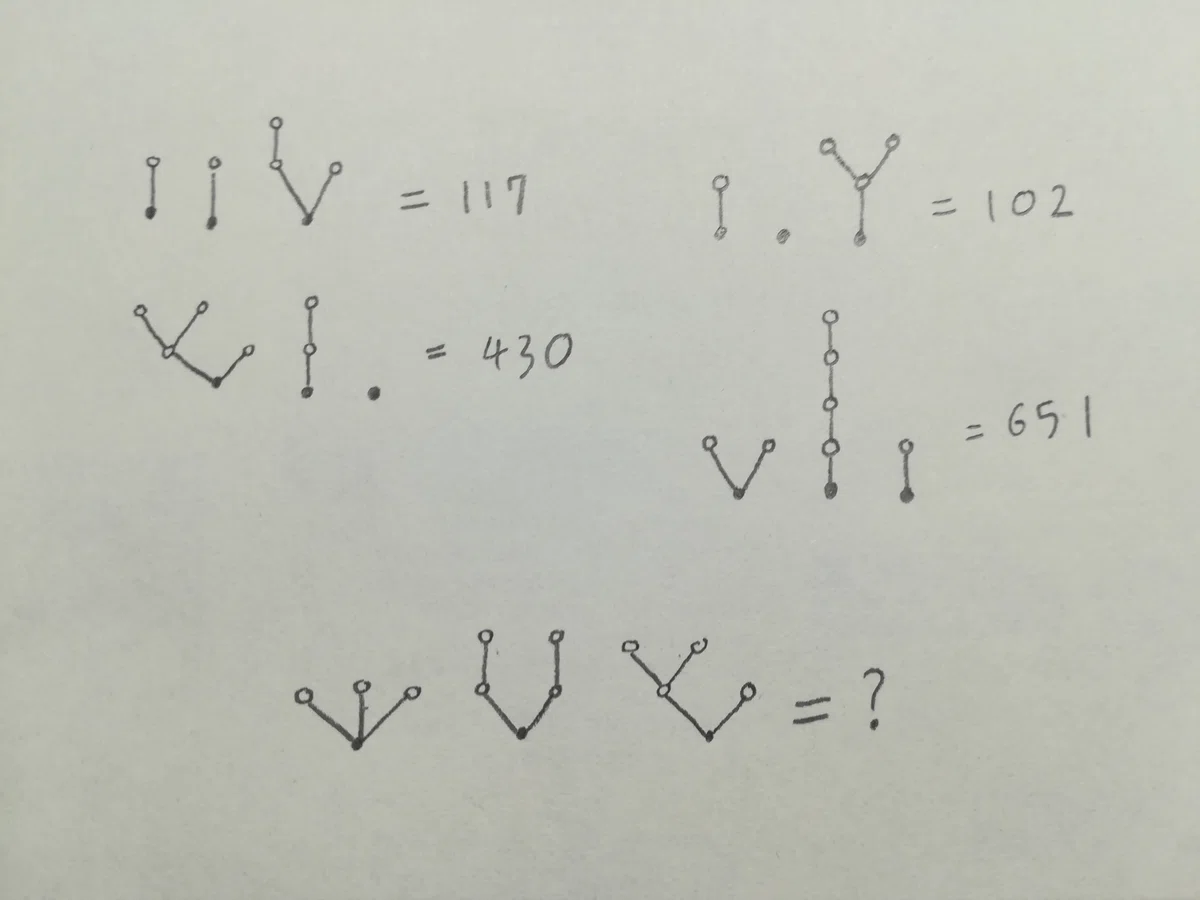 = 117
= 102
= 430
= 651
= ?